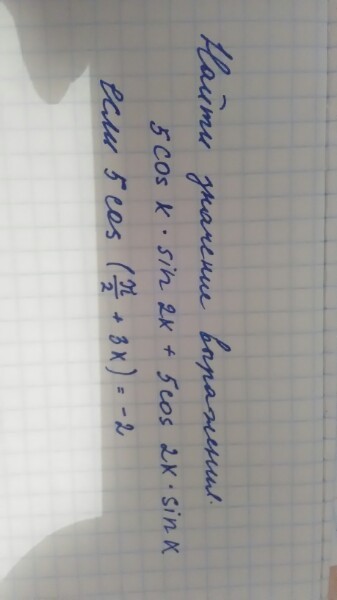 Найти значение выражения:
5 cos x · sin 2x + 5 cos 2x · sin x
если 5 cos (π/2 + 3x) = -2